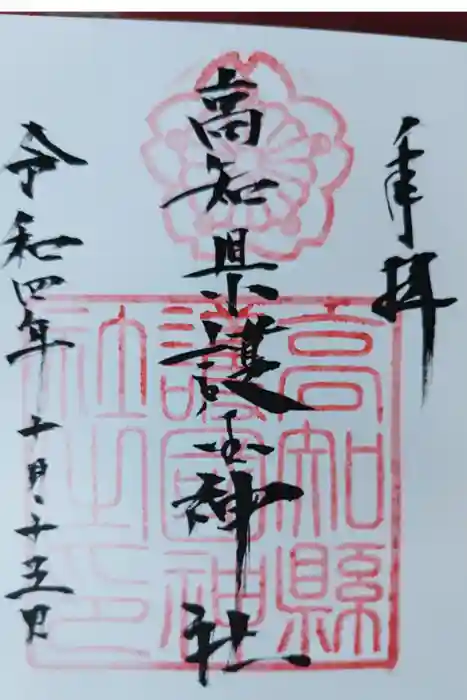 奉拝
高知県護国神社
高知縣
護國神
社之印
令和四年十月二十五日